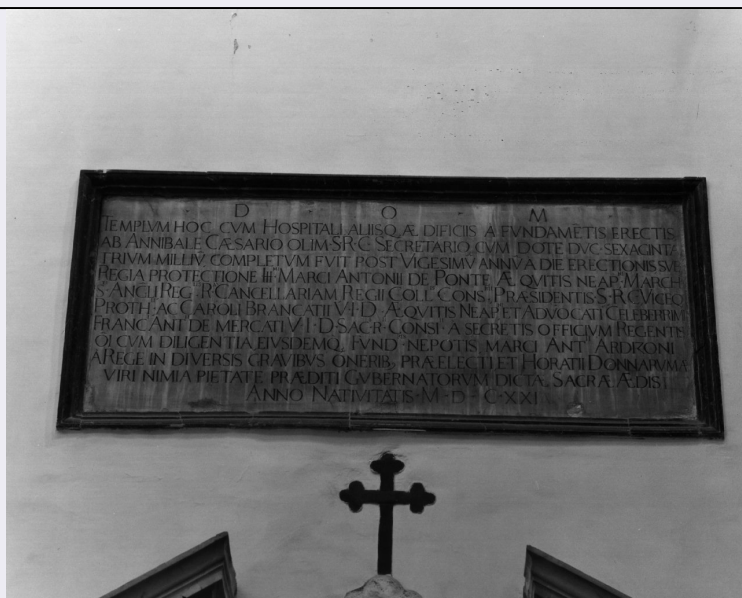 D O M
TEMPLVM HOC CVM HOSPITALI ALIISQ. ÆDIFICIS A FVNDAMETIS ERECTIS
AB ANNIBALE CÆSARIO OLIM S. R. C. SECRETARIO CVM DOTE DVC. SEXAGINTA
TRIVM MILLIV COMPLETVM FVIT POST VIGESIMV ANNV A DIE ERECTIONIS SVB
REGIA PROTECTIONE MARCI ANTONII DE PONTE ÆQVITIS NEAP. MARCH
S. ANGLI REG. R. CANCELLARIAM REGII COLL. CONS. PRÆSIDENTIS S. R. C. VICEQ
PROTH. AC CAROLI BRANCATII V. I. D. ÆQVITIS NEAP. ET ADVOCATI CELEBERRIM
FRANC ANT DE MERCATI V. I. D. SAC. R. CONSI. A SECRETIS OFFICIVM REGENTIS
CVM DILIGENTIA EIVSDEMQ. FVND. NEPOTIS MARCI ANT
A REGE IN DIVERSIS GRAVIBVS ONERIB. PRÆELECTI ET HORATII DONNARVMÆ
VIRI NIMIA PIETATE PRÆDITI GVBERNATORVM DICTÆ SACRÆ ÆDIS
ANNO NATIVITATIS M. D. C. XXI